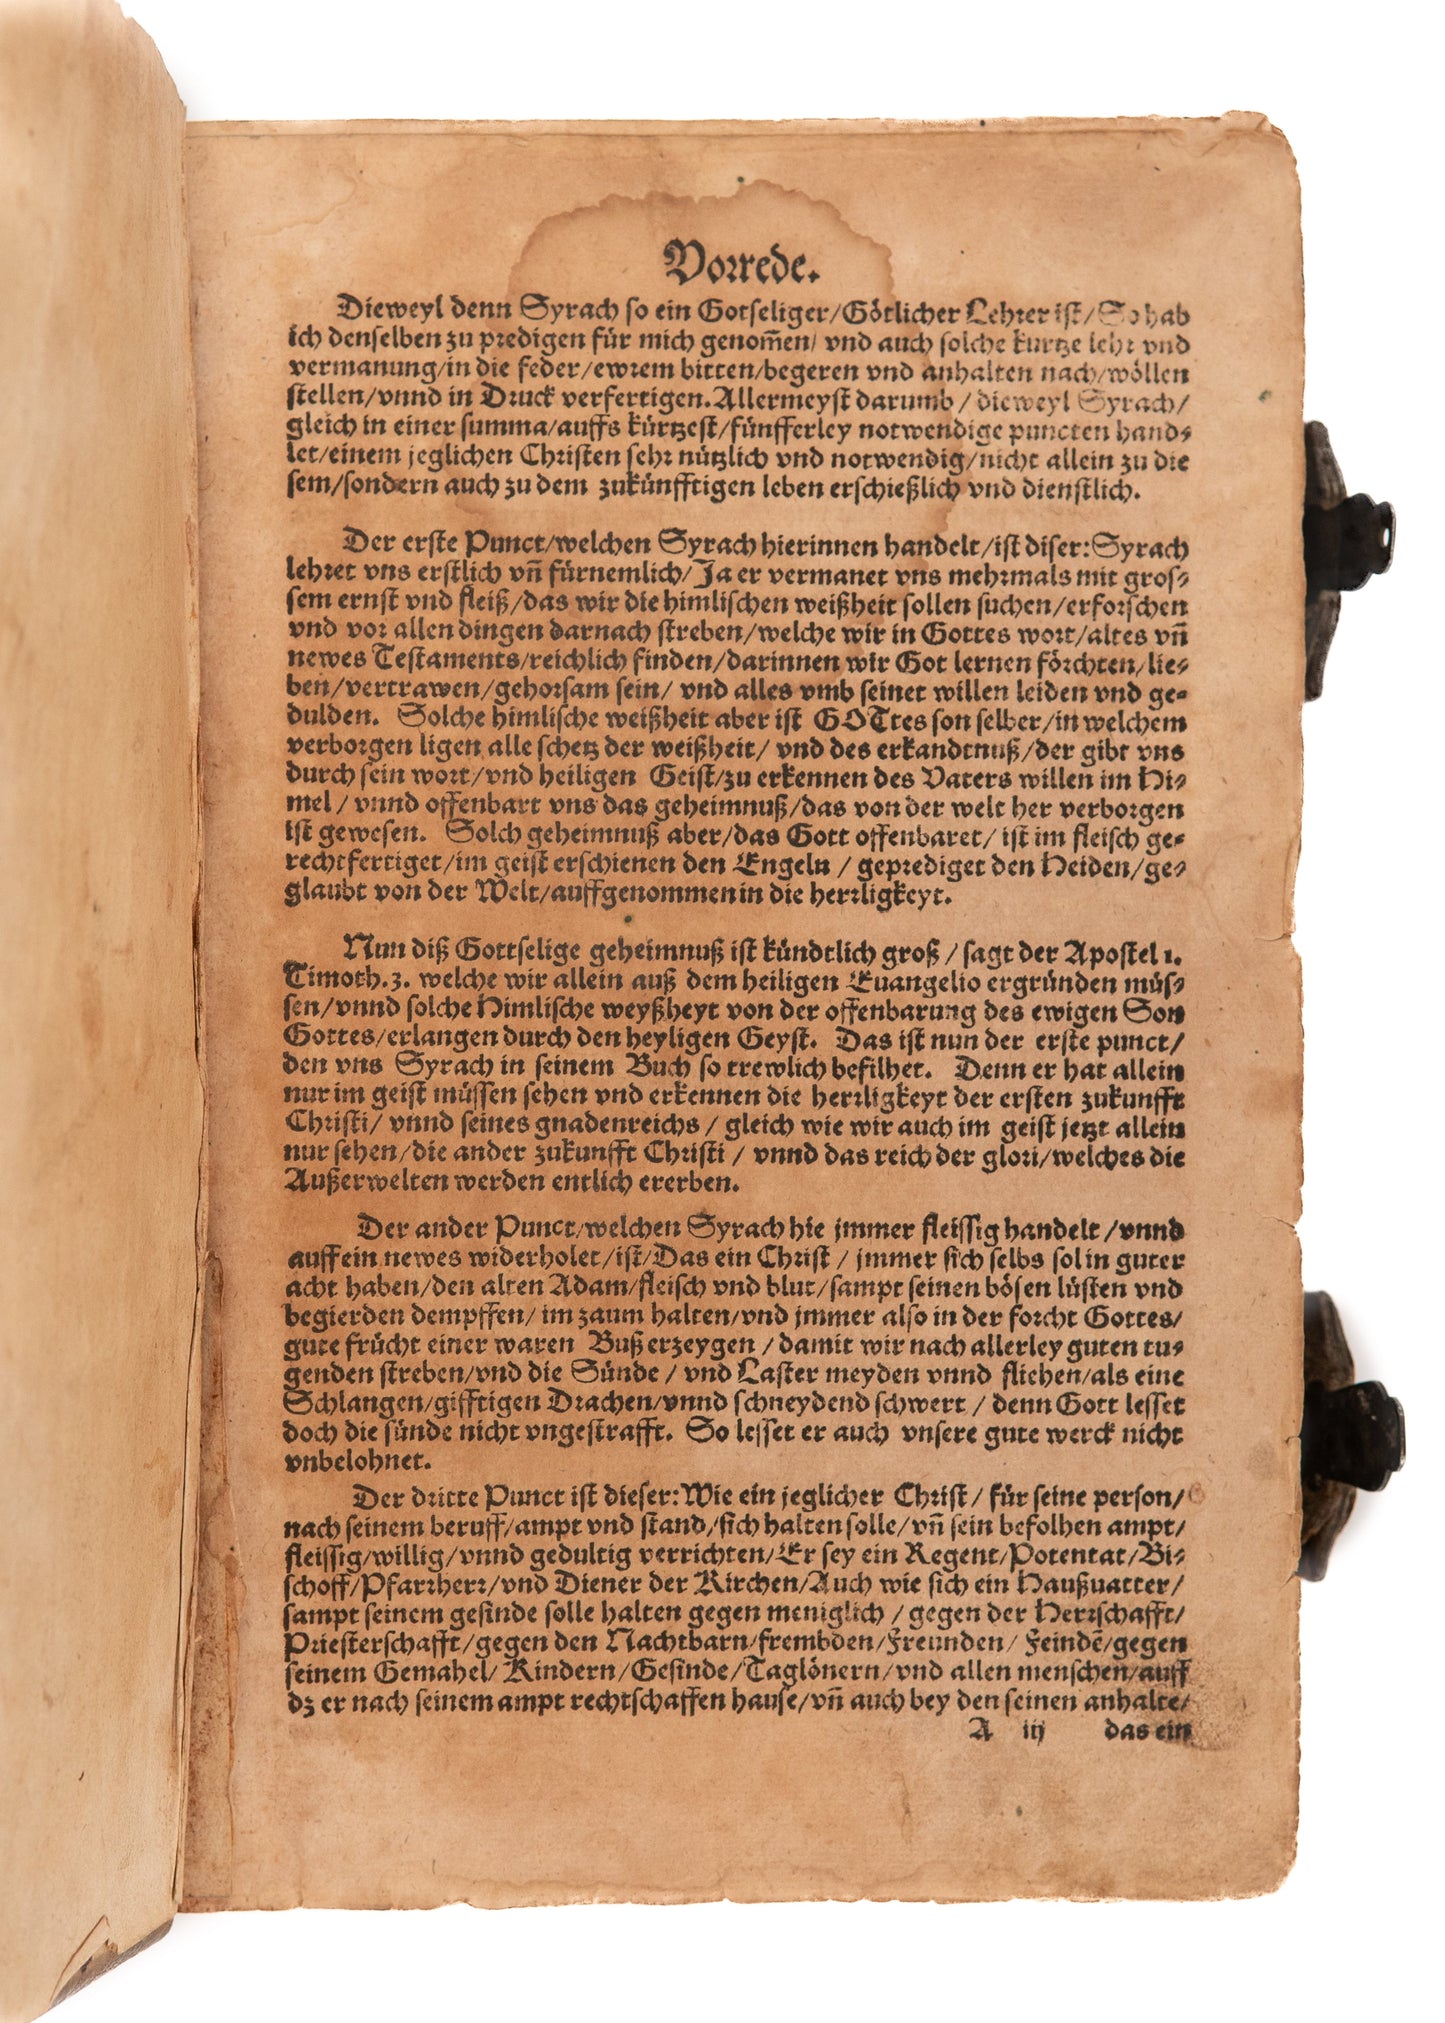 Vorrede.
Dieweyl denn Syrach so ein Gotseliger/Götlicher Lehrer ist/So hab
ich denselben zu predigen für mich genom̃en/ vnd auch solche kurtze lehr vnd
vermanung/in die feder/ewrem bitten/begeren vnd anhalten nach/wöllen
stellen/vnnd in Druck verfertigen.Allermeyst darumb / dieweyl Syrach/
gleich in einer summa/auffs kürtzest/fünfferley notwendige puncten hand⸗
let/einem jeglichen Christen sehr nützlich vnd notwendig/nicht allein zu die
sem/sondern auch zu dem zukünfftigen leben erschießlich vnd dienstlich.
Der erste Punct/welchen Syrach hierinnen handelt/ist diser:Syrach
lehret vns erstlich vn̄ fürnemlich/Ja er vermanet vns mehrmals mit gros⸗
sem ernst vnd fleiß/das wir die himlischen weißheit sollen suchen/erforschen
vnd vor allen dingen darnach streben/welche wir in Gottes wort/altes vn̄
newes Testaments/reichlich finden/darinnen wir Got lernen förchten/lie⸗
ben/vertrawen/gehorsam sein/ vnd alles vmb seinet willen leiden vnd ge⸗
dulden. Solche himlische weißheit aber ist GOTtes son selber/in welchem
verborgen ligen alle schetz der weißheit/ vnd des erkandtnuß/der gibt vns
durch sein wort/vnd heiligen Geist/zu erkennen des Vaters willen im Hi⸗
mel / vnnd offenbart vns das geheimnuß/das von der welt her verborgen
ist gewesen. Solch geheimnuß aber/das Gott offenbaret/ ist im fleisch ge⸗
rechtfertiget/im geist erschienen den Engeln / geprediget den Heiden/ge⸗
glaubt von der Welt/auffgenommen in die herrligkeyt.
Nun diß Gottselige geheimnuß ist kündtlich groß / sagt der Apostel 1.
Timoth.3. welche wir allein auß dem heiligen Euangelio ergründen müs⸗
sen/vnnd solche Himlische weyßheyt von der offenbarung des ewigen Son
Gottes/erlangen durch den heyligen Geyst. Das ist nun der erste punct/
den vns Syrach in seinem Buch so trewlich befilhet. Denn er hat allein
nur im geist müssen sehen vnd erkennen die herrligkeyt der ersten zukunfft
Christi/ vnnd seines gnadenreichs / gleich wie wir auch im geist jetzt allein
nur sehen/die ander zukunfft Christi / vnnd das reich der glori/welches die
Außerwelten werden entlich ererben.
Der ander Punct/welchen Syrach hie jmmer fleissig handelt /vnnd
auff ein newes widerholet/ist/Das ein Christ / jmmer sich selbs sol in guter
acht haben/den alten Adam/fleisch vnd blut/sampt seinen bösen lüsten vnd
begierden dempffen/ im zaum halten/vnd jmmer also in der forcht Gottes/
gute frücht einer waren Buß erzeygen / damit wir nach allerley guten tu⸗
genden streben/vnd die Sünde / vnd Laster meyden vnnd fliehen/als eine
Schlangen/gifftigen Drachen/vnnd schneydend schwert / denn Gott lesset
doch die sünde nicht vngestrafft. So lesset er auch vnsere gute werck nicht
vnbelohnet.
Der dritte Punct ist dieser:Wie ein jeglicher Christ / für seine person/
nach seinem beruff/ampt vnd stand/sich halten solle/vn̄ sein befolhen ampt/
fleissig/willig/vnnd gedultig verrichten/Er sey ein Regent/Potentat/Bi⸗
schoff/Pfarrherr/vnd Diener der Kirchen/Auch wie sich ein Haußuatter/
sampt seinem gesinde solle halten gegen meniglich / gegen der Herrschafft/
Priesterschafft/gegen den Nachtbarn/frembden/Freunden/ Feindē/gegen
seinem Gemahel/ Kindern/Gesinde/Taglönern/vnd allen menschen/auff
dz er nach seinem ampt rechtschaffen hause/vn̄ auch bey den seinen anhalte/
A iij das ein